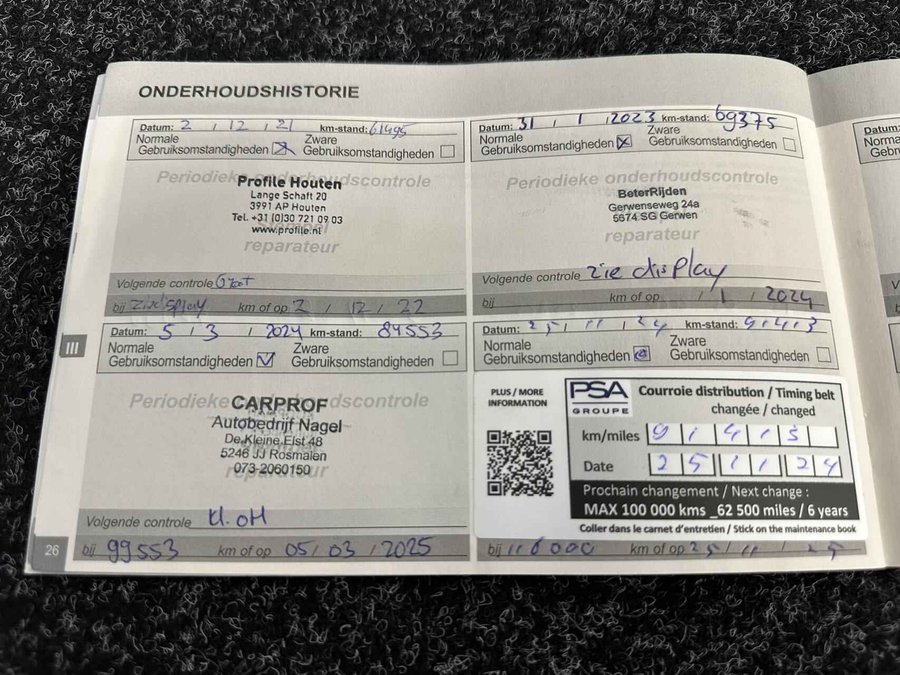 ONDERHOUDSHISTORIE
Datum: 2 / 12 / 21 km-stand: 61495
Normale
Gebruiksomstandigheden
Zware
Gebruiksomstandigheden
Periodieke onderhoudscontrole
Profile Houten
Lange Schaft 20
3991 AP Houten
Tel. +31 (0)30 721 09 03
www.profile.nl
reparateur
Volgende controle Groot
bij km of op 2 / 12 / 22
Datum: 31 / 1 / 2023 km-stand: 69375
Normale
Gebruiksomstandigheden
Zware
Gebruiksomstandigheden
Periodieke onderhoudscontrole
BeterRijden
Gerwenseweg 24a
5674 SG Gerwen
reparateur
Volgende controle zie display
bij km of op / 1 / 2024
III
Datum: 5 / 3 / 2024 km-stand: 84553
Normale
Gebruiksomstandigheden
Zware
Gebruiksomstandigheden
Periodieke onderhoudscontrole
CARPROF
Autobedrijf Nagel
De Kleine Elst 48
5246 JJ Rosmalen
073-2060150
reparateur
Volgende controle
bij 99553 km of op 05 / 03 / 2025
Datum: 25 / 11 / 24 km-stand:
Normale
Gebruiksomstandigheden
Zware
Gebruiksomstandigheden
PLUS / MORE
INFORMATION
PSA
GROUPE
Courroie distribution / Timing belt
changée / changed
km/miles 91413
Date 25 11 24
Prochain changement / Next change :
MAX 100 000 kms _62 500 miles / 6 years
Coller dans le carnet d'entretien / Stick on the maintenance book
bij km of op 25 / 11 / 25
26